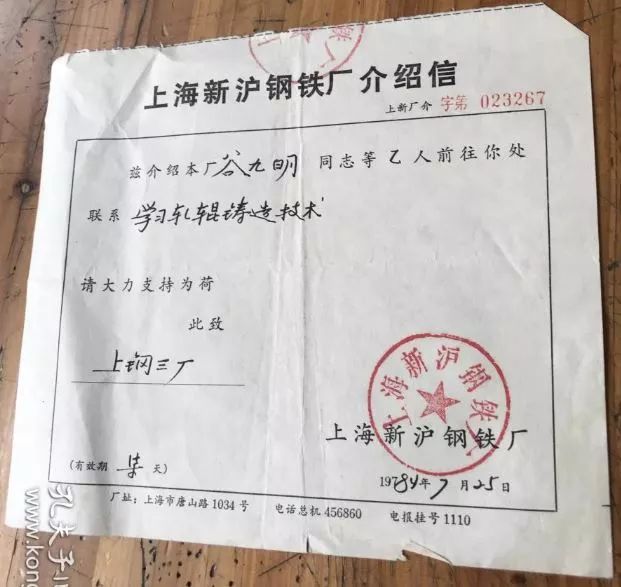 上海新沪钢铁厂介绍信
上新厂介 字第 023267
兹介绍本厂谷九明同志等乙人前往你处
联系 学习轧辊铸造技术
请大力支持为荷
此致
上钢三厂
上海新沪钢铁厂
上海新沪钢铁厂
(有效期 柒 天)
1984年7月25日
厂址：上海市唐山路1034号 电话总机 456860 电报挂号 1110
孔夫子
www.kon